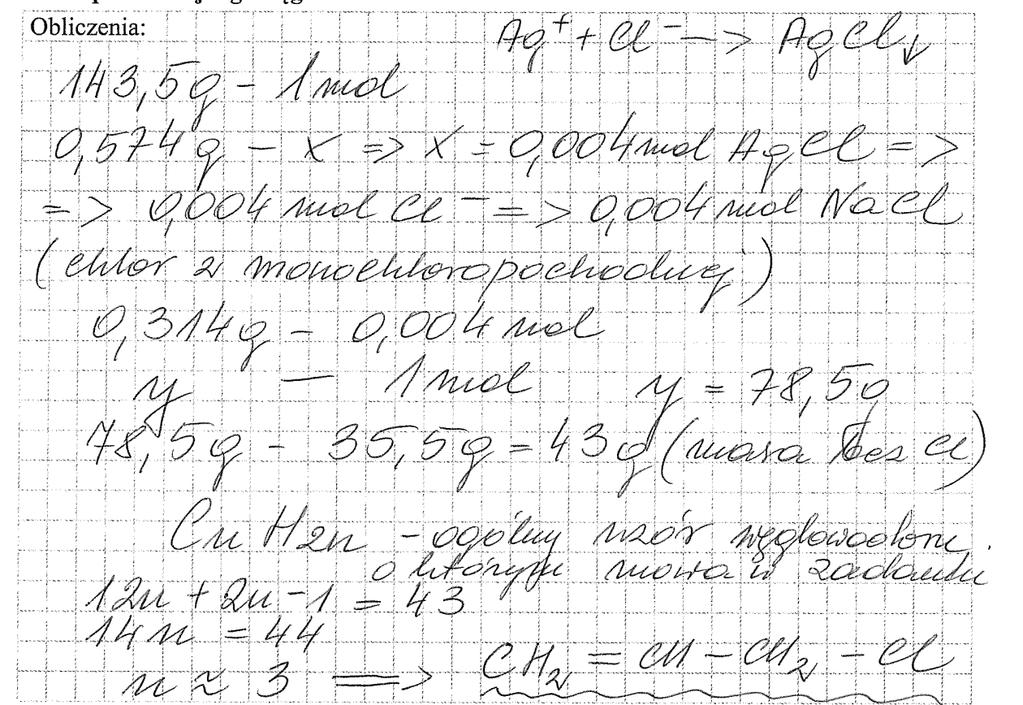 Obliczenia:
Ag⁺ + Cl⁻ –> AgCl↓
143,5g – 1 mol
0,574g – x => x = 0,004 mol AgCl =>
=> 0,004 mol Cl⁻ => 0,004 mol NaCl
(chlor z monochloropochodnej)
0,314g – 0,004 mol
y – 1 mol y = 78,5g
78,5g – 35,5g = 43g (masa bez Cl)
CnH2n – ogólny wzór węglowodoru,
o którym mowa w zadaniu
12n + 2n – 1 = 43
14n = 44
n ≈ 3 => CH₂ = CH – CH₂ – Cl